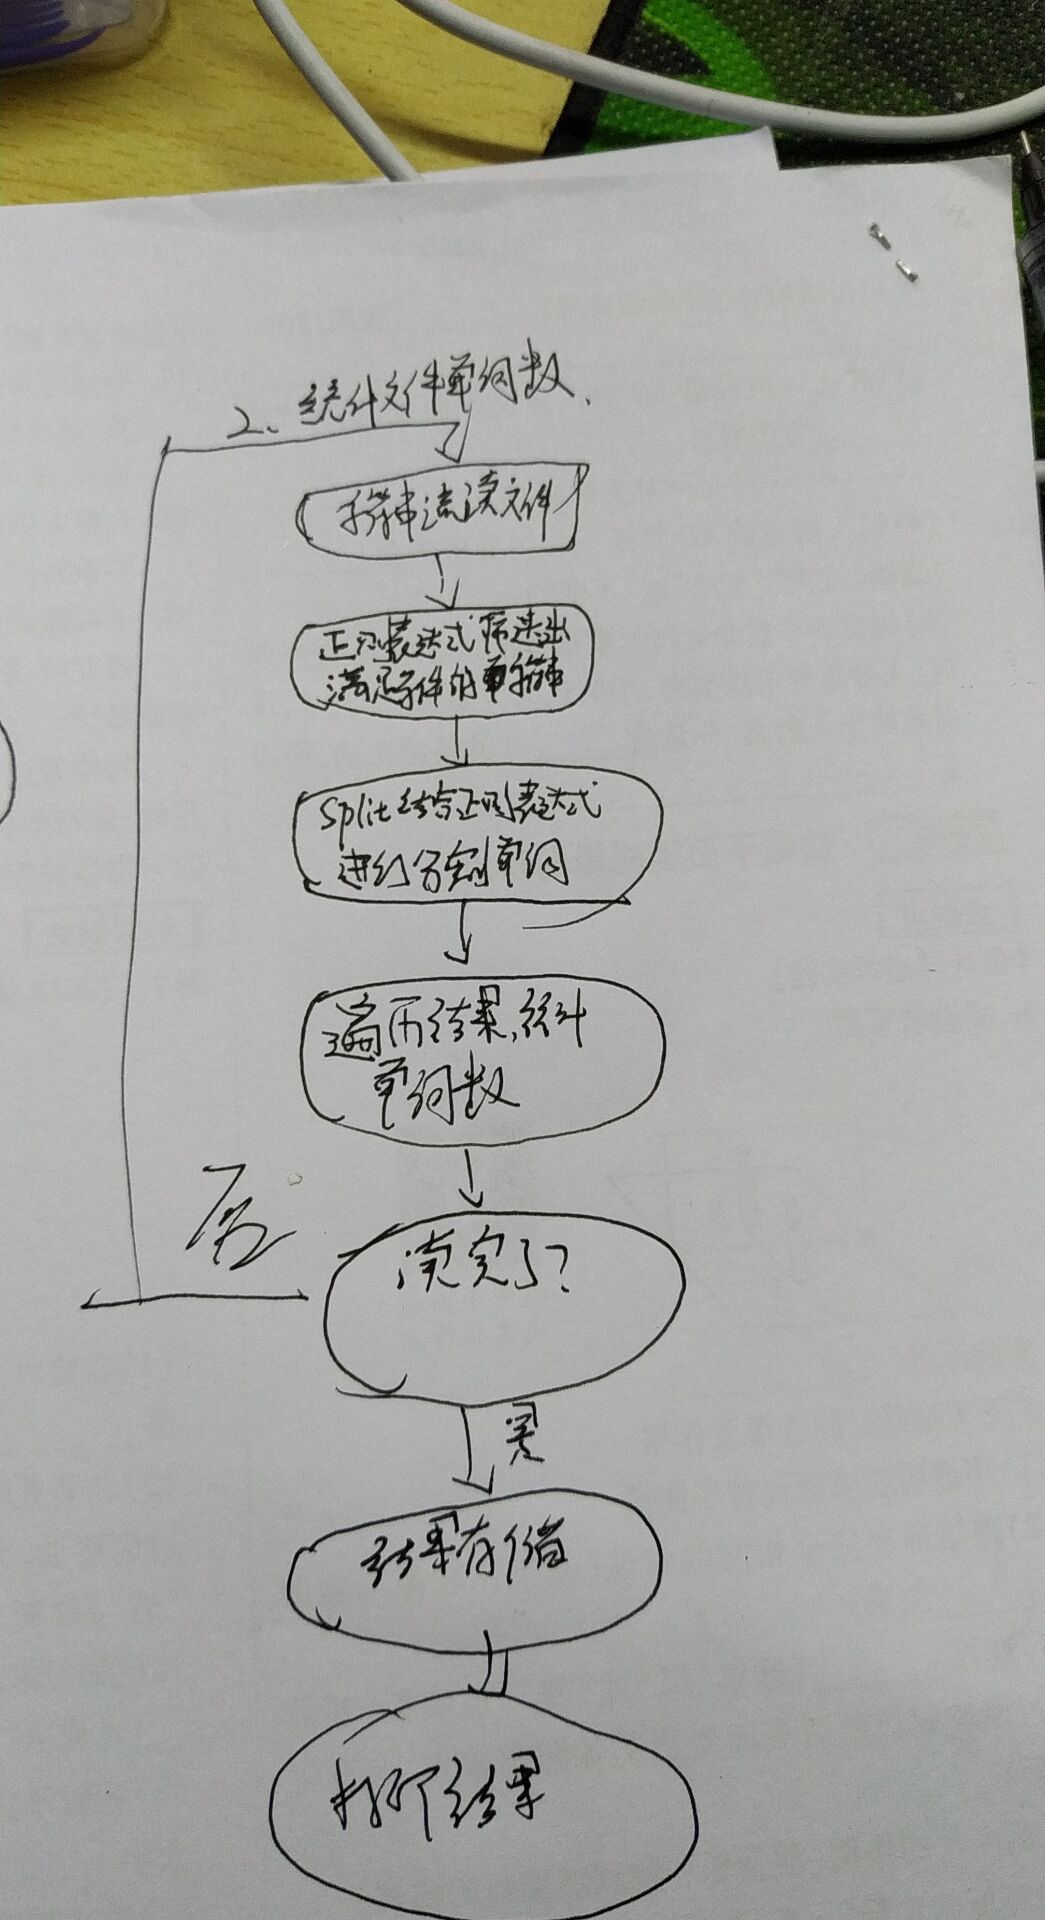 2、统计文件单词数、
字符串流读文件
正则表达式筛选出
满足条件的单字符串
split结合正则表达式
进行分割单词
遍历结果,统计
单词数
否
读完了?
是
结果存储
打印结果